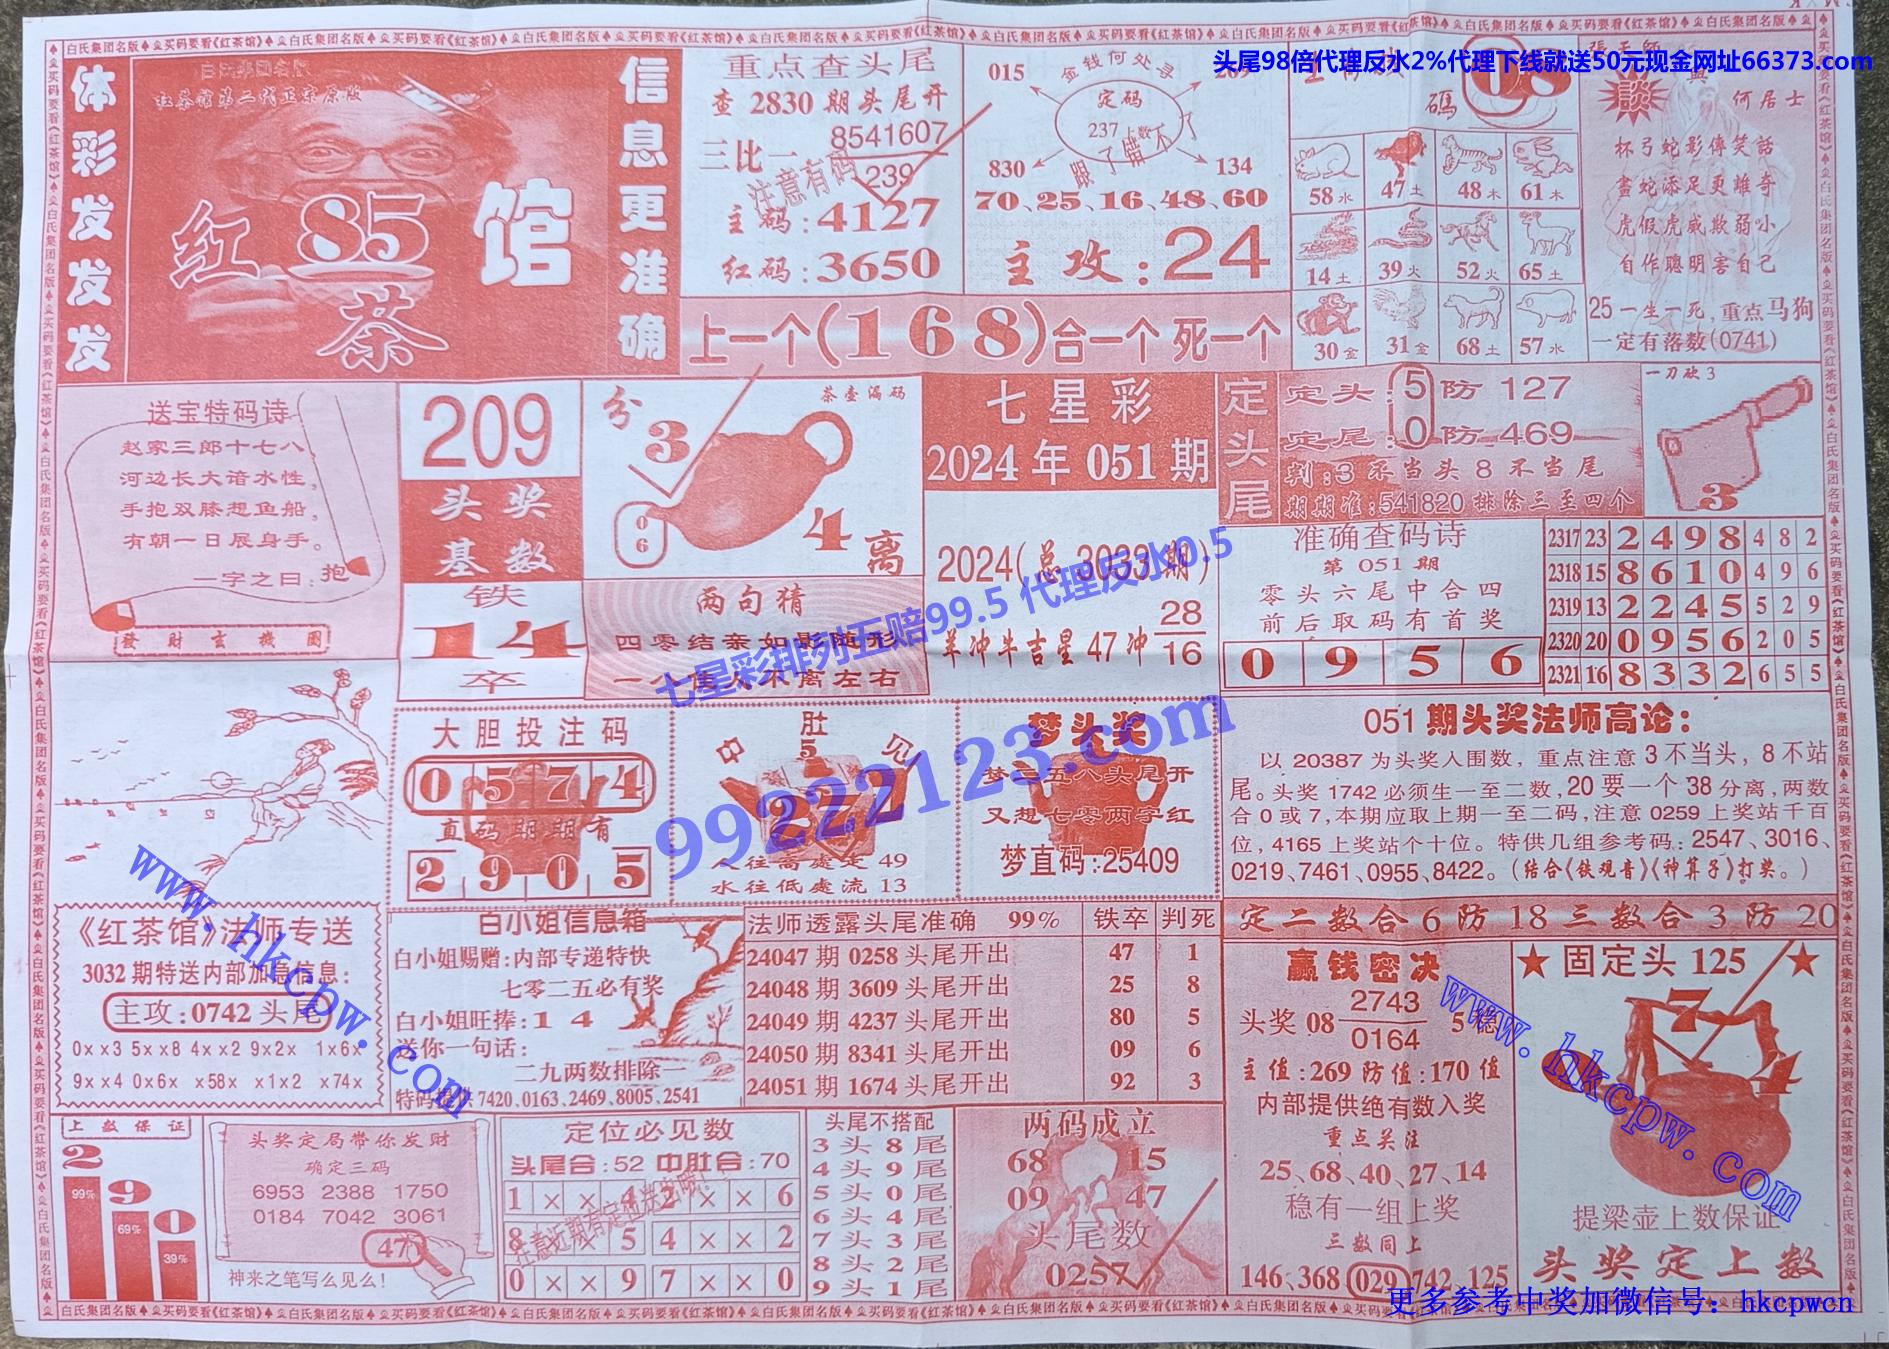 头尾98倍代理反水2%代理下线就送50元现金网址66373.com
体彩发发发
白氏集团名版
红茶馆第二代正宗原版
红茶馆
85
信息更准确
重点查头尾
查 2830 期头尾开
三比一
8541607
239
注意有码
主码:4127
红码:3650
015
金钱何处寻
209
定码
237上数
830
跟了错不了
134
70、25、16、48、60
主攻:24
上一个(168)合一个死一个
碼
08
58水 47土 48木 61木
14土 39火 52火 65土
30金 31金 68土 57水
張天師
與
談
何居士
杯弓蛇影傳笑話
畫蛇添足更離奇
虎假虎威欺弱小
自作聰明害自己
25一生一死,重点马狗
一定有落数(0741)
送宝特码诗
赵家三郎十七八,
河边长大谙水性,
手抱双膝想鱼船,
有朝一日展身手。
一字之曰:抱
發財玄機圖
209
头奖
基数
铁
14
卒
茶壶漏码
分
3
06
4
离
两句猜
四零结亲如影随形
七星彩
2024年051期
2024(总3033期)
羊冲牛吉星47冲
28
16
定头尾
定头:5防127
定尾:0防469
判:3不当头8不当尾
期期准:541820排除三至四个
一刀砍3
3
准确查码诗
第051期
零头六尾中合四
前后取码有首奖
0 9 5 6
2317 23 2 4 9 8 4 8 2
2318 15 8 6 1 0 4 9 6
2319 13 2 2 4 5 5 2 9
2320 20 0 9 5 6 2 0 5
2321 16 8 3 3 2 6 5 5
七星彩排列五赔99.5 代理反水0.5
99222123.com
大胆投注码
0 5 7 4
直码期期有
2 9 0 5
中肚见
5
227
人往高處走 49
水往低處流 13
梦头奖
梦一五八头尾开
又想七零两字红
梦直码:25409
051期头奖法师高论:
以20387为头奖入围数,重点注意3不当头,8不站
尾。头奖1742必须生一至二数,20要一个38分离,两数
合0或7,本期应取上期一至二码,注意0259上奖站千百
位,4165上奖站个十位。特供几组参考码:2547、3016、
0219、7461、0955、8422。(结合《铁观音》《神算子》打奖。)
《红茶馆》法师专送
3032期特送内部加急信息:
主攻:0742头尾
0××3 5××8 4××2 9×2× 1×6×
9××4 0×6× ×58× ×1×2 ×74×
白小姐信息箱
白小姐赐赠:内部专递特快
七零二五必有奖
白小姐旺捧:14
送你一句话:
二九两数排除一
7420、0163、2469、8005、2541
法师透露头尾准确 99% 铁卒 判死
24047期0258头尾开出 47 1
24048期3609头尾开出 25 8
24049期4237头尾开出 80 5
24050期8341头尾开出 09 6
24051期1674头尾开出 92 3
定二数合6防18三数合3防20
赢钱密决
头奖08
2743
0164
5稳
主值:269防值:170值
内部提供绝有数入奖
重点关注
25、68、40、27、14
稳有一组上奖
三数同上
146、368 029 742 125
★固定头125★
7
4
提梁壶上数保证
头奖定上数
上数保证
2 9 0
99% 69% 39%
头奖定局带你发财
确定三码
6953 2388 1750
0184 7042 3061
47
神来之笔写么见么!
定位必见数
头尾合:52中肚合:70
1××4 2××6
8××5 4××2
0××9 7××0
头尾不搭配
3头8尾
4头9尾
5头0尾
6头4尾
7头3尾
8头2尾
9头1尾
两码成立
68 15
09 47
头尾数
0257
www.hkcpw.com
www.hkcpw.com
更多参考中奖加微信号:hkcpwcn
白氏集团名版♠买码要看《红茶馆》